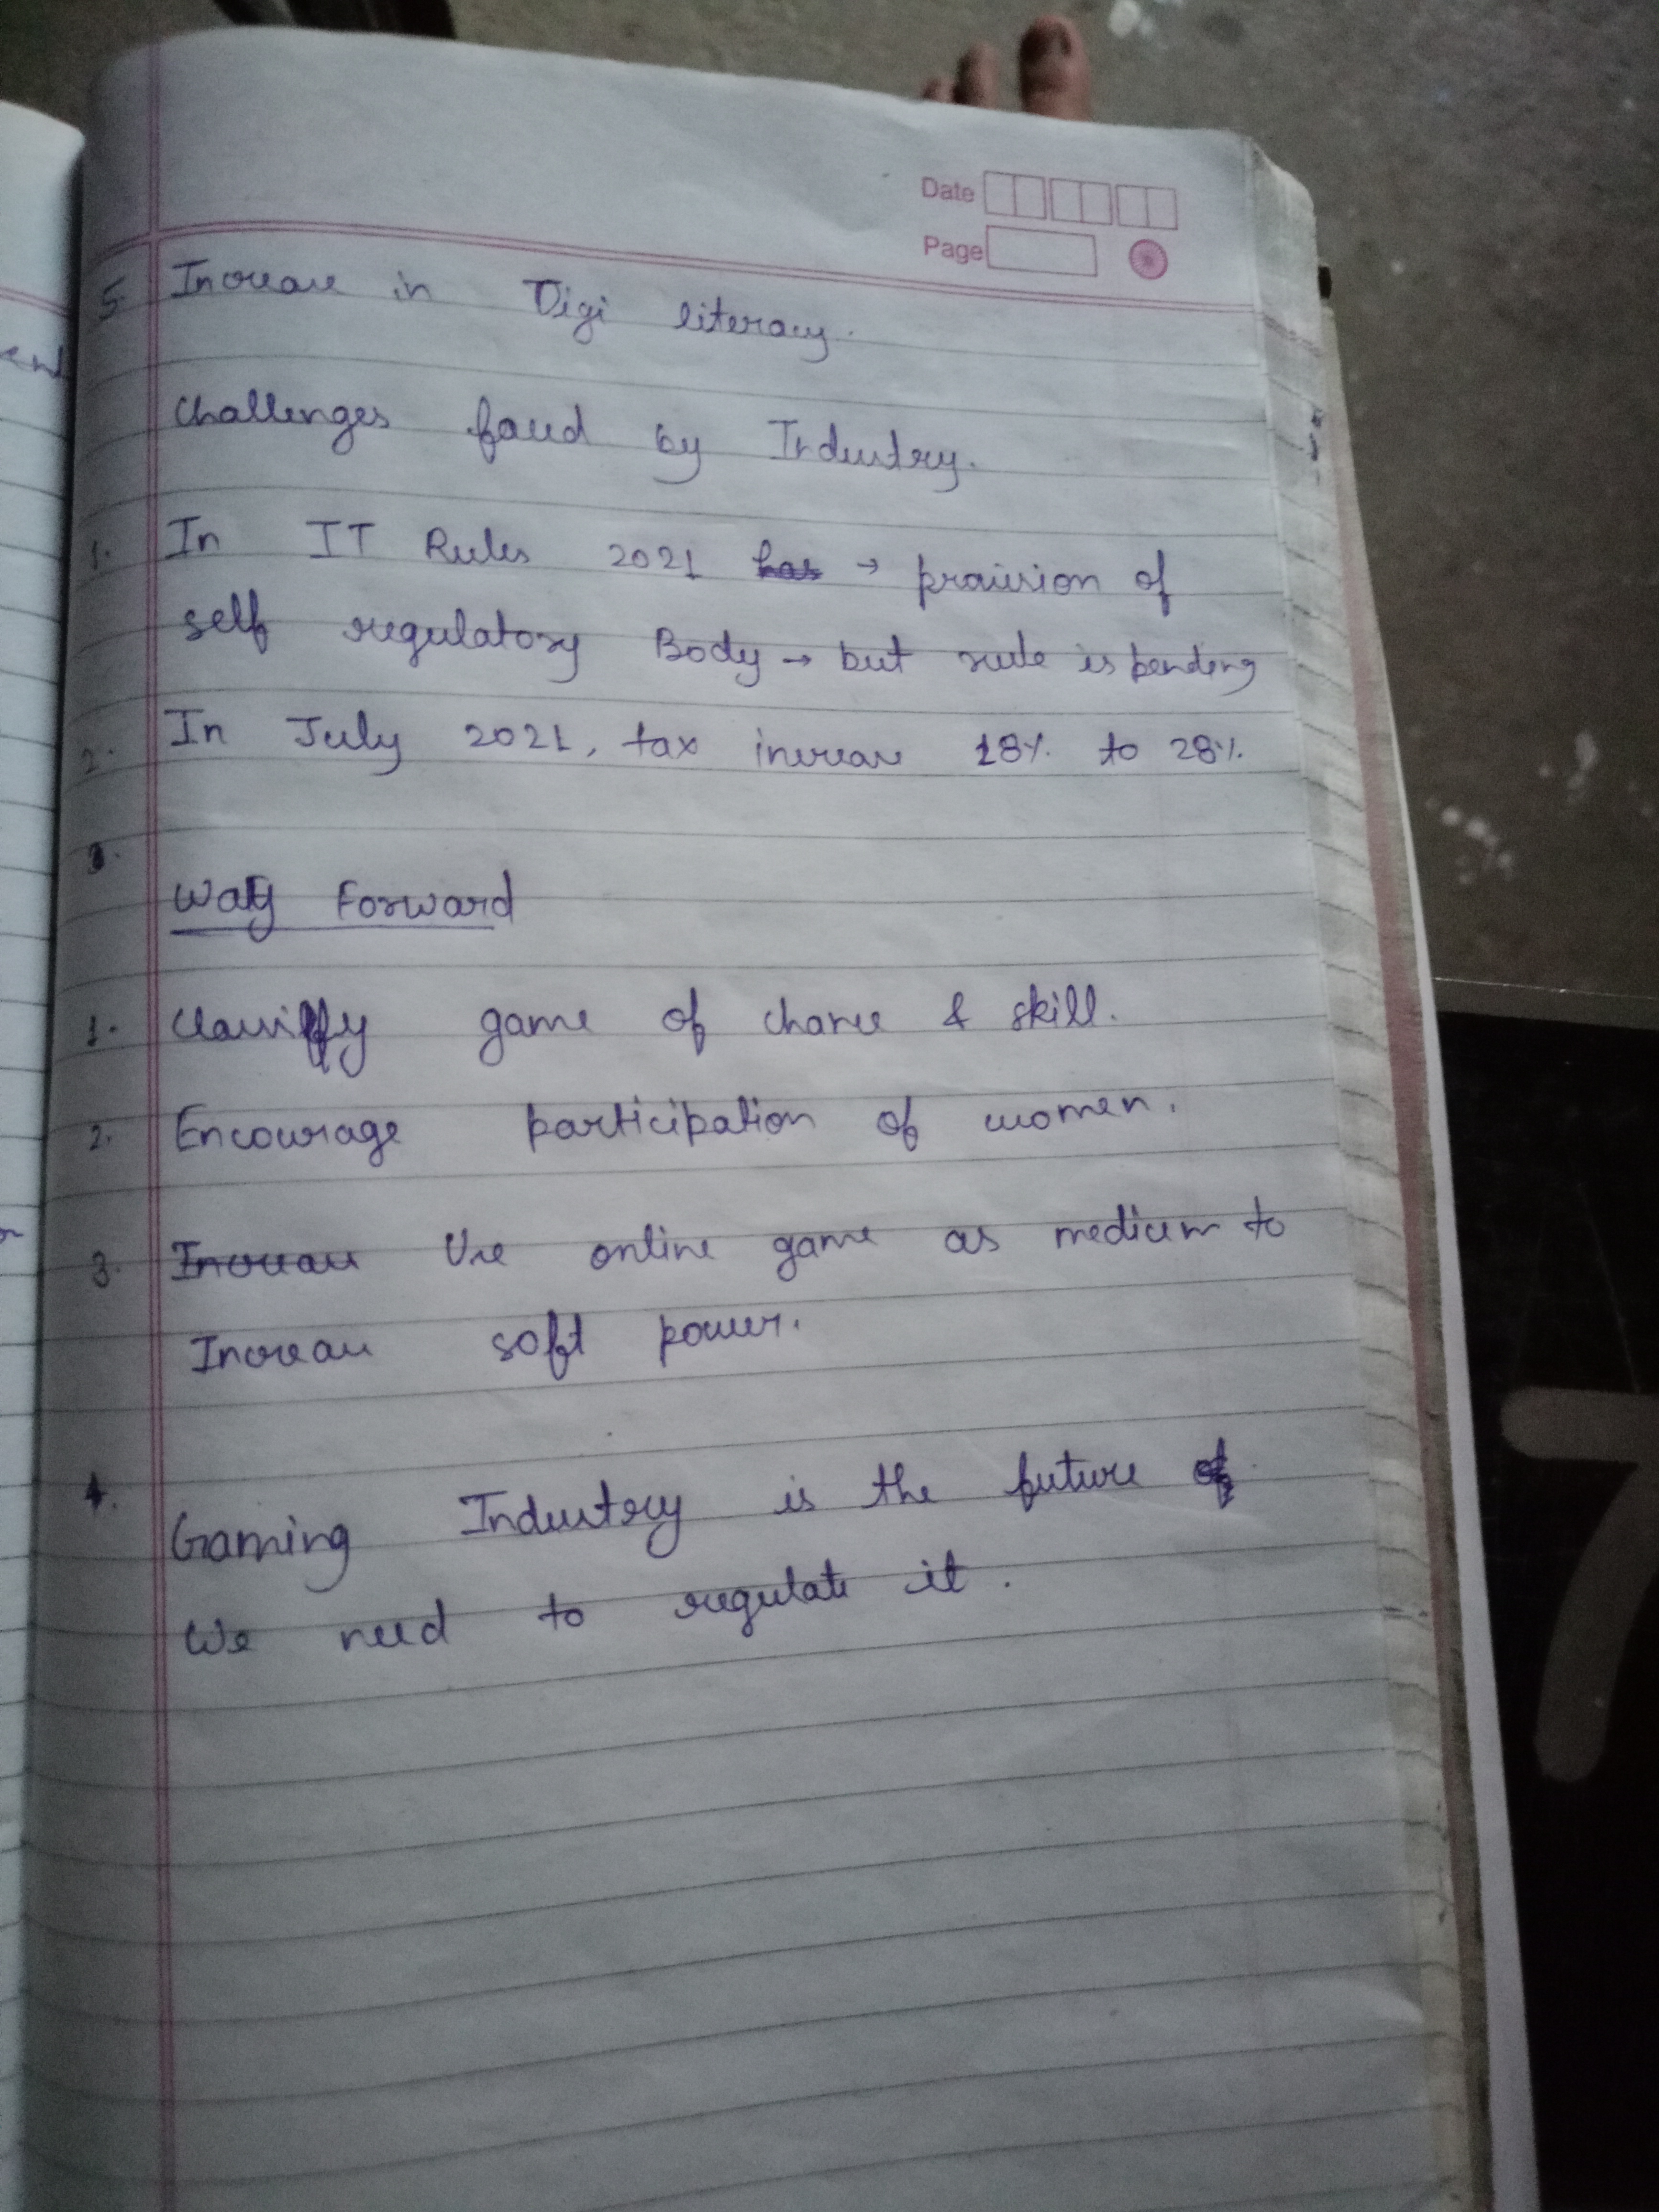 Date
Page
5. Increase in Digi literacy.
Challenges faced by Industry.
1. In IT Rules 2021 has → provision of
self regulatory Body → but rule is pending
2. In July 2021, tax increase 18% to 28%
3.
Way Forward
1. Classify game of chance & skill.
2. Encourage participation of women.
3. Increase Use online game as medium to
Increase soft power.
4.
Gaming Industry is the future of
We need to regulate it.
7